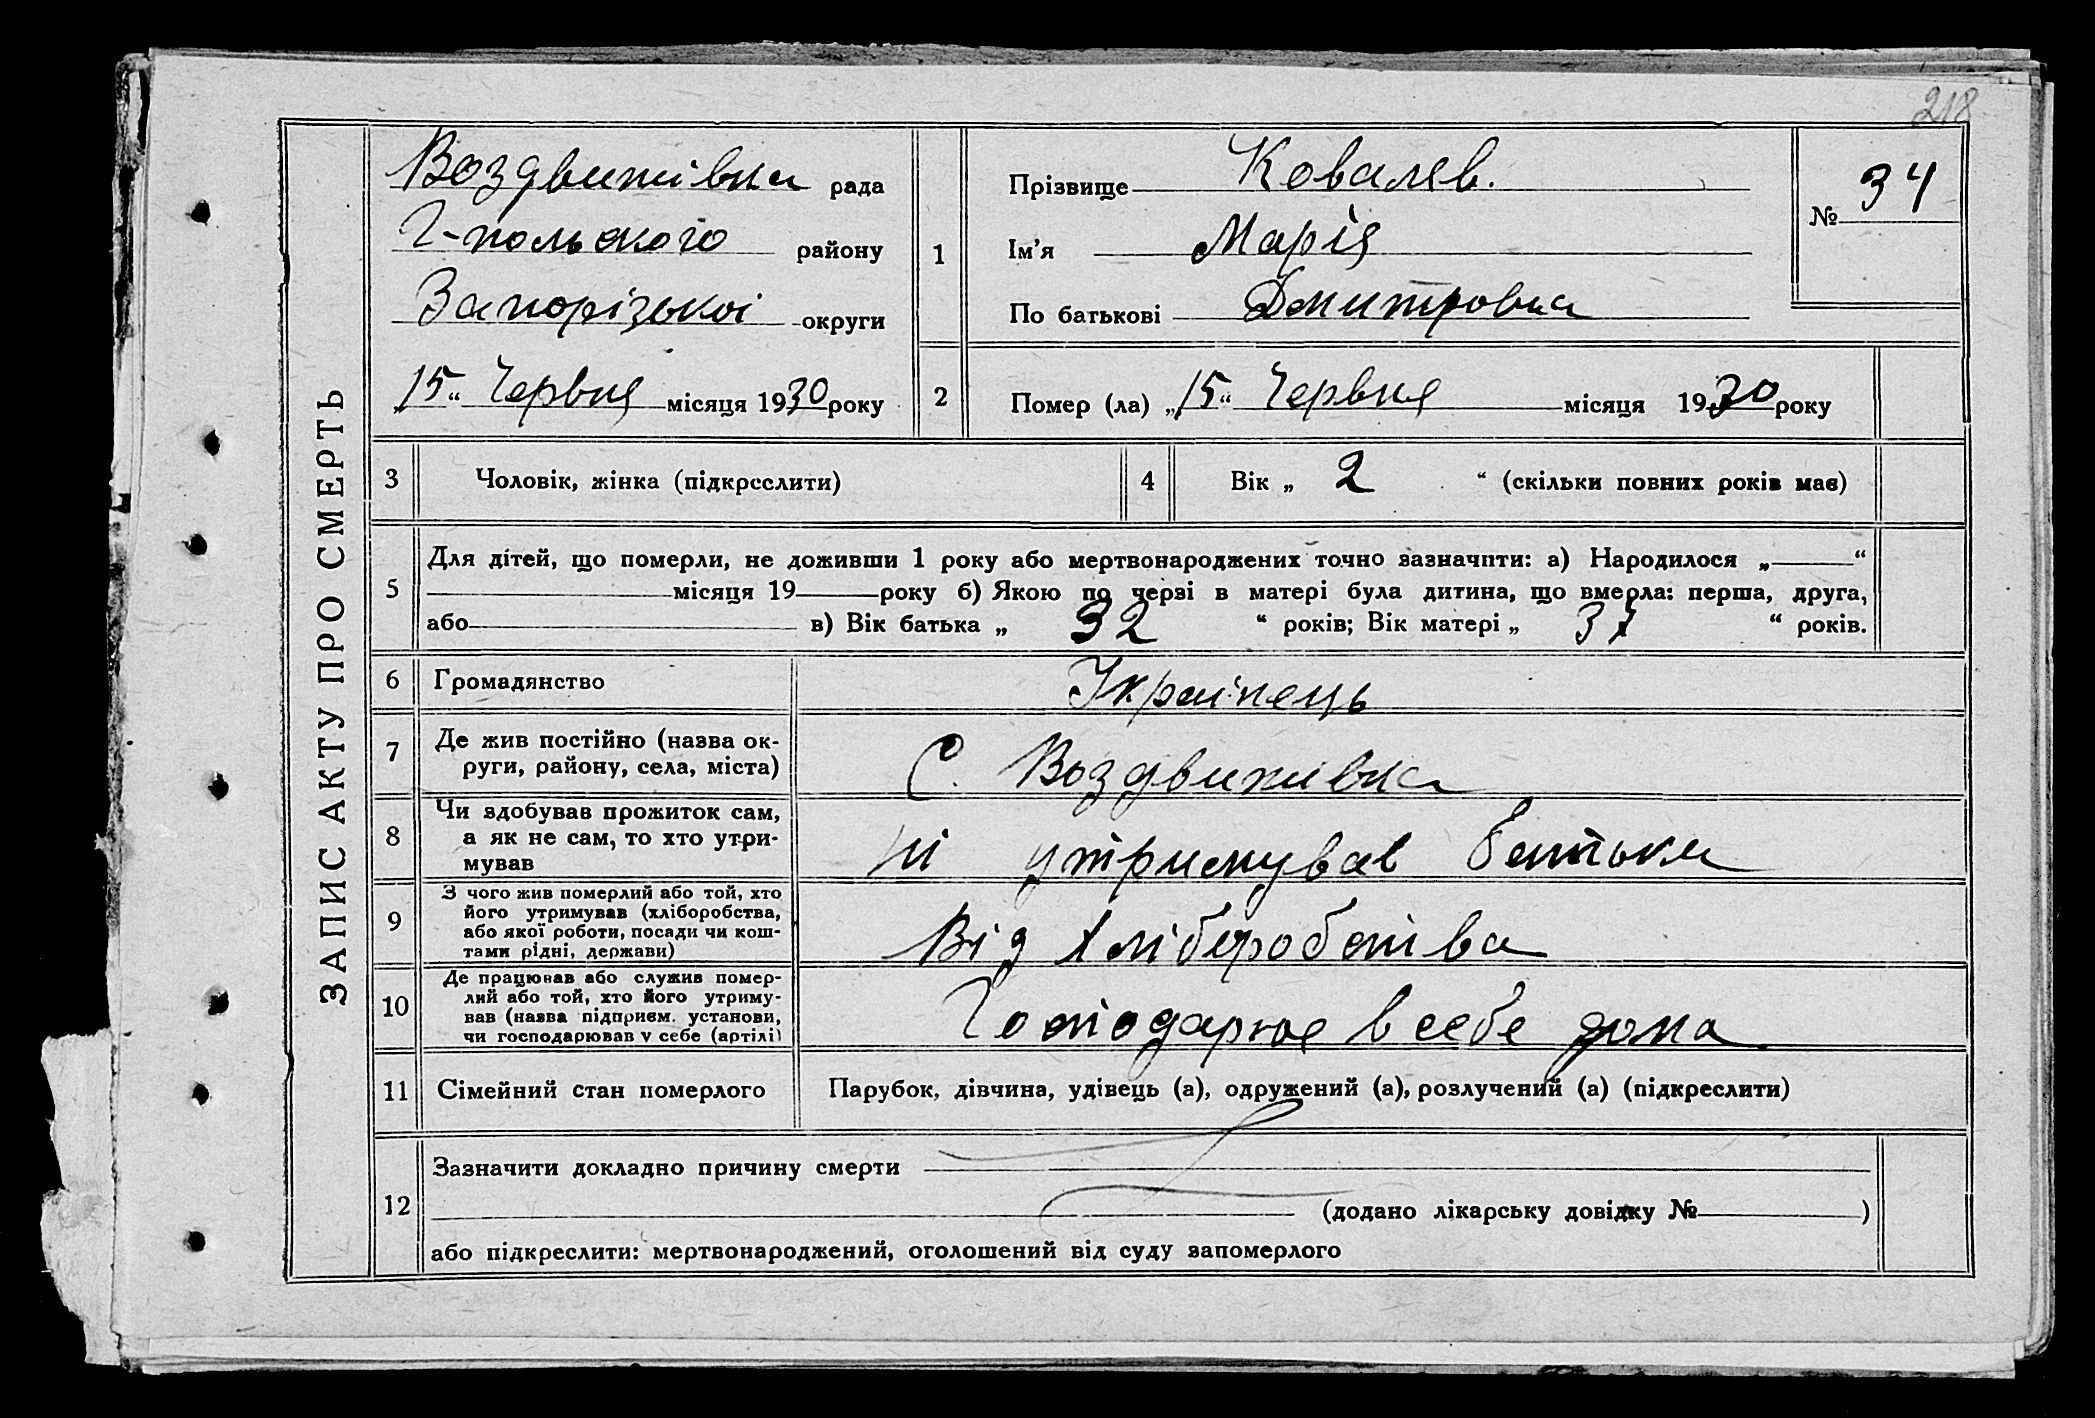 218
ЗАПИС АКТУ ПРО СМЕРТЬ
Воздвижівка рада
Г-польского району
Запорізькоі округи
15 “ Червня місяця 1930 року
1
Прізвище Ковалев.
Ім’я Марія
По батькові Дмитровна
№ 34
2
Помер (ла) „ 15 “ Червня місяця 1930 року
3
Чоловік, жінка (підкреслити)
4
Вік „ 2 “ (скільки повних років має)
5
Для дітей, що померли, не доживши 1 року або мертвонароджених точно зазначити: а) Народилося „ “
місяця 19 року б) Якою по черзі в матері була дитина, що вмерла: перша, друга,
або в) Вік батька „ 32 “ років; Вік матері „ 37 “ років.
6
Громадянство
Украінець
7
Де жив постійно (назва ок-
руги, району, села, міста)
С. Воздвижівка
8
Чи здобував прожиток сам,
а як не сам, то хто утри-
мував
ні утримував батьки
9
З чого жив померлий або той, хто
його утримував (хліборобства,
або якої роботи, посади чи кош-
тами рідні, держави)
Від хліборобства
10
Де працював або служив помер-
лий або той, хто його утриму-
вав (назва підприєм. установи,
чи господарював у себе (артілі)
Господарює в себе дома
11
Сімейний стан померлого
Парубок, дівчина, удівець (а), одружений (а), розлучений (а) (підкреслити)
12
Зазначити докладно причину смерти
(додано лікарську довідку № )
або підкреслити: мертвонароджений, оголошений від суду запомерлого